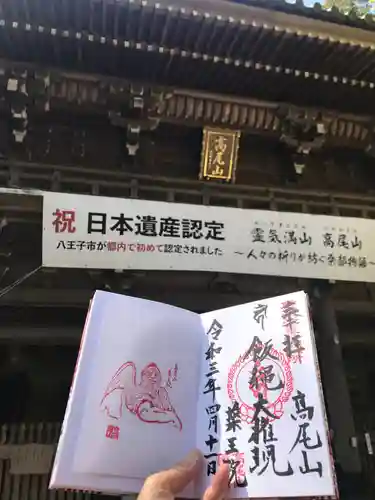 高尾山
祝 日本遺産認定
八王子市が都内で初めて認定されました
霊気満山 高尾山
～人々の祈りが紡ぐ桑都物語～
奉拝
高尾山
飯縄大権現
薬王院
令和三年四月十一日